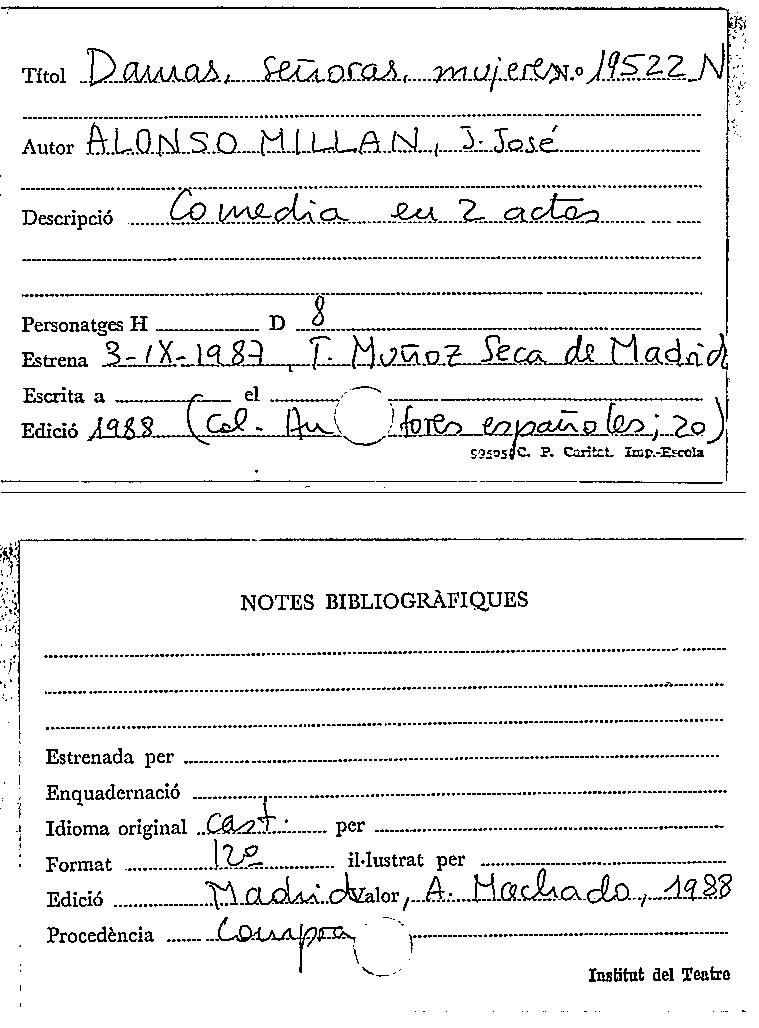 Títol Damas, señoras, mujeres N.º 19522 N
Autor ALONSO MILLAN, J. José
Descripció Comedia en 2 actos
Personatges H D 8
Estrena 3-IX-1987, T. Muñoz Seca de Madrid
Escrita a el
Edició 1988 (Col. Autores españoles; 20)
C. P. Caritat. Imp.-Escola
NOTES BIBLIOGRÀFIQUES
Estrenada per
Enquadernació
Idioma original cast. per
Format 12º il·lustrat per
Edició Madrid Valor, A. Machado, 1988
Procedència Compra
Institut del Teatre